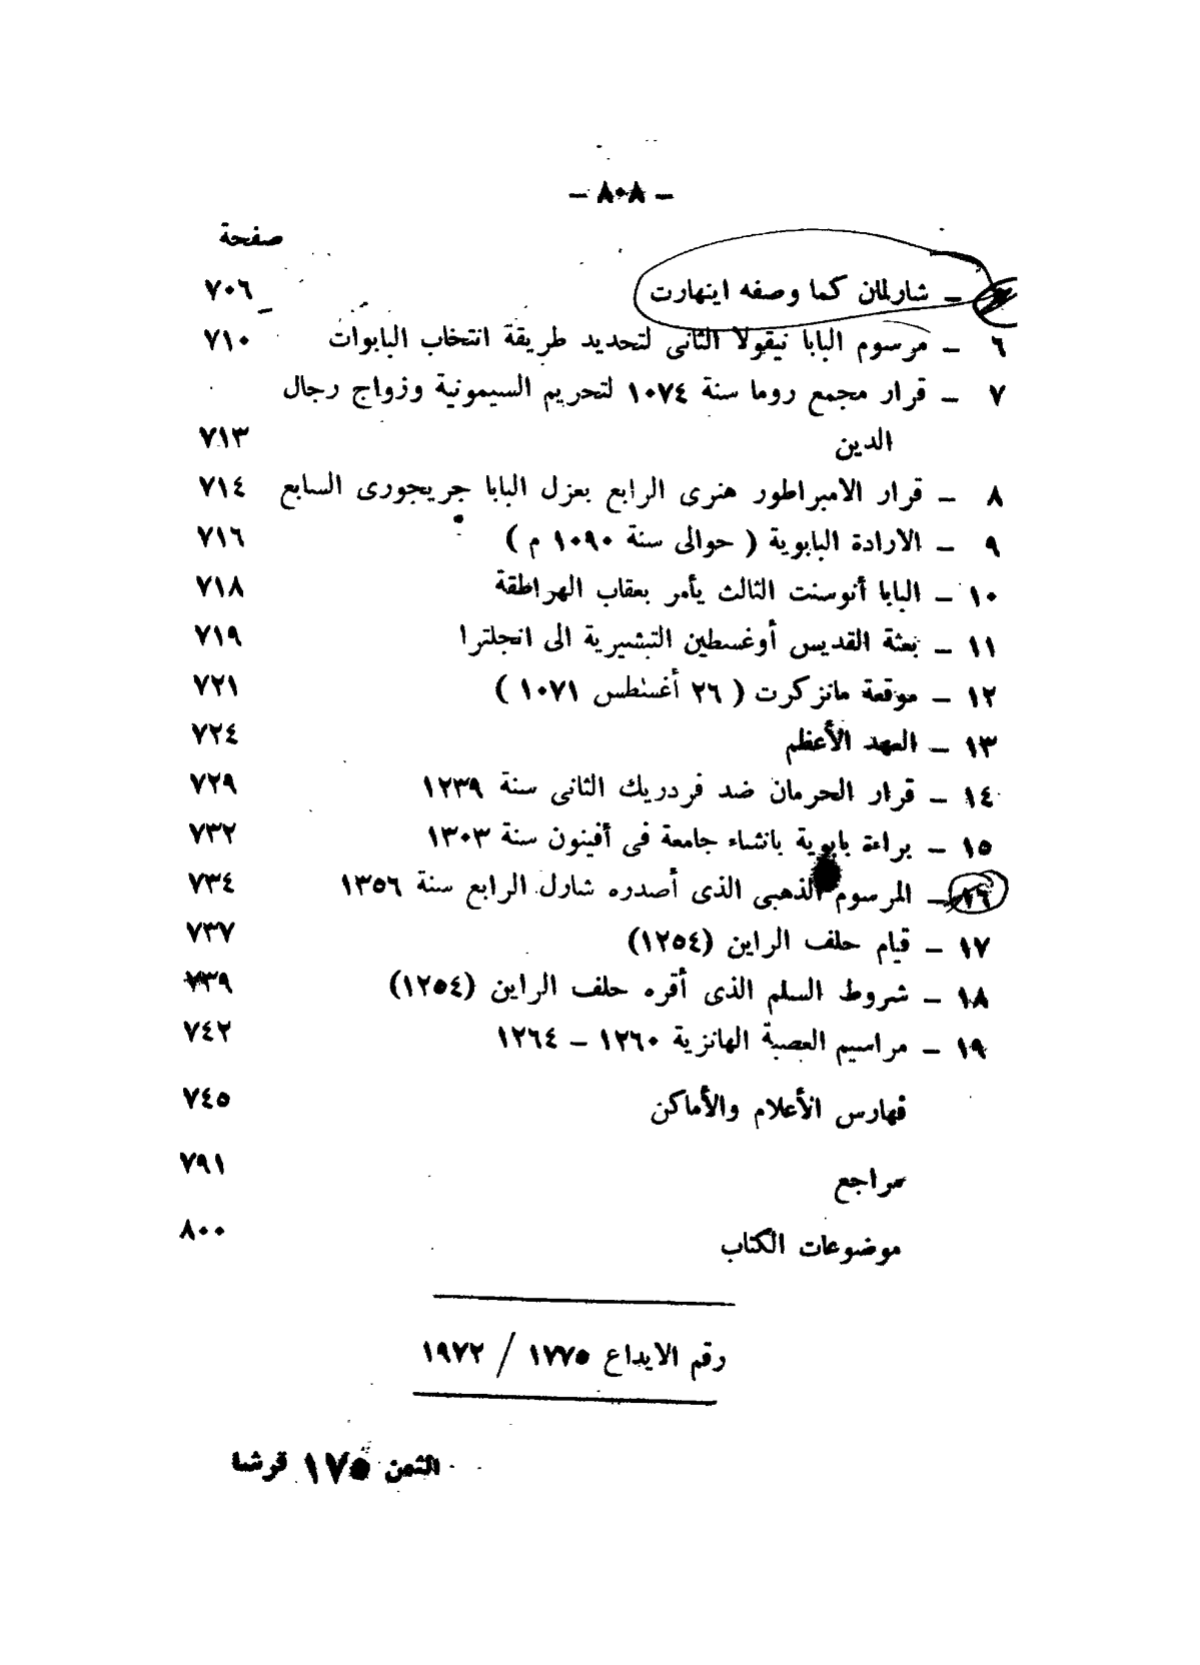 – ٨٠٨ –
صفحة
– شارلمان كما وصفه اينهارت ٧٠٦
٦ – مرسوم البابا نيقولا الثانى لتحديد طريقة انتخاب البابوات ٧١٠
٧ – قرار مجمع روما سنة ١٠٧٤ لتحريم السيمونية وزواج رجال
الدين ٧١٣
٨ – قرار الامبراطور هنرى الرابع بعزل البابا جريجورى السابع ٧١٤
٩ – الارادة البابوية ( حوالى سنة ١٠٩٠ م ) ٧١٦
١٠ – البابا أنوسنت الثالث يأمر بعقاب الهراطقة ٧١٨
١١ – بعثة القديس أوغسطين التبشيرية الى انجلترا ٧١٩
١٢ – موقعة مانزكرت ( ٢٦ أغسطس ١٠٧١ ) ٧٢١
١٣ – العهد الأعظم ٧٢٤
١٤ – قرار الحرمان ضد فردريك الثانى سنة ١٢٣٩ ٧٢٩
١٥ – براءة بابوية بانشاء جامعة فى أفينون سنة ١٣٠٣ ٧٣٢
١٦ – المرسوم الذهبى الذى أصدره شارل الرابع سنة ١٣٥٦ ٧٣٤
١٧ – قيام حلف الراين (١٢٥٤) ٧٣٧
١٨ – شروط السلم الذى أقره حلف الراين (١٢٥٤) ٧٣٩
١٩ – مراسيم العصبة الهانزية ١٢٦٠ – ١٢٦٤ ٧٤٢
فهارس الأعلام والأماكن ٧٤٥
مراجع ٧٩١
موضوعات الكتاب ٨٠٠
رقم الايداع ١٧٧٥ / ١٩٧٢
الثمن ١٧٥ قرشا